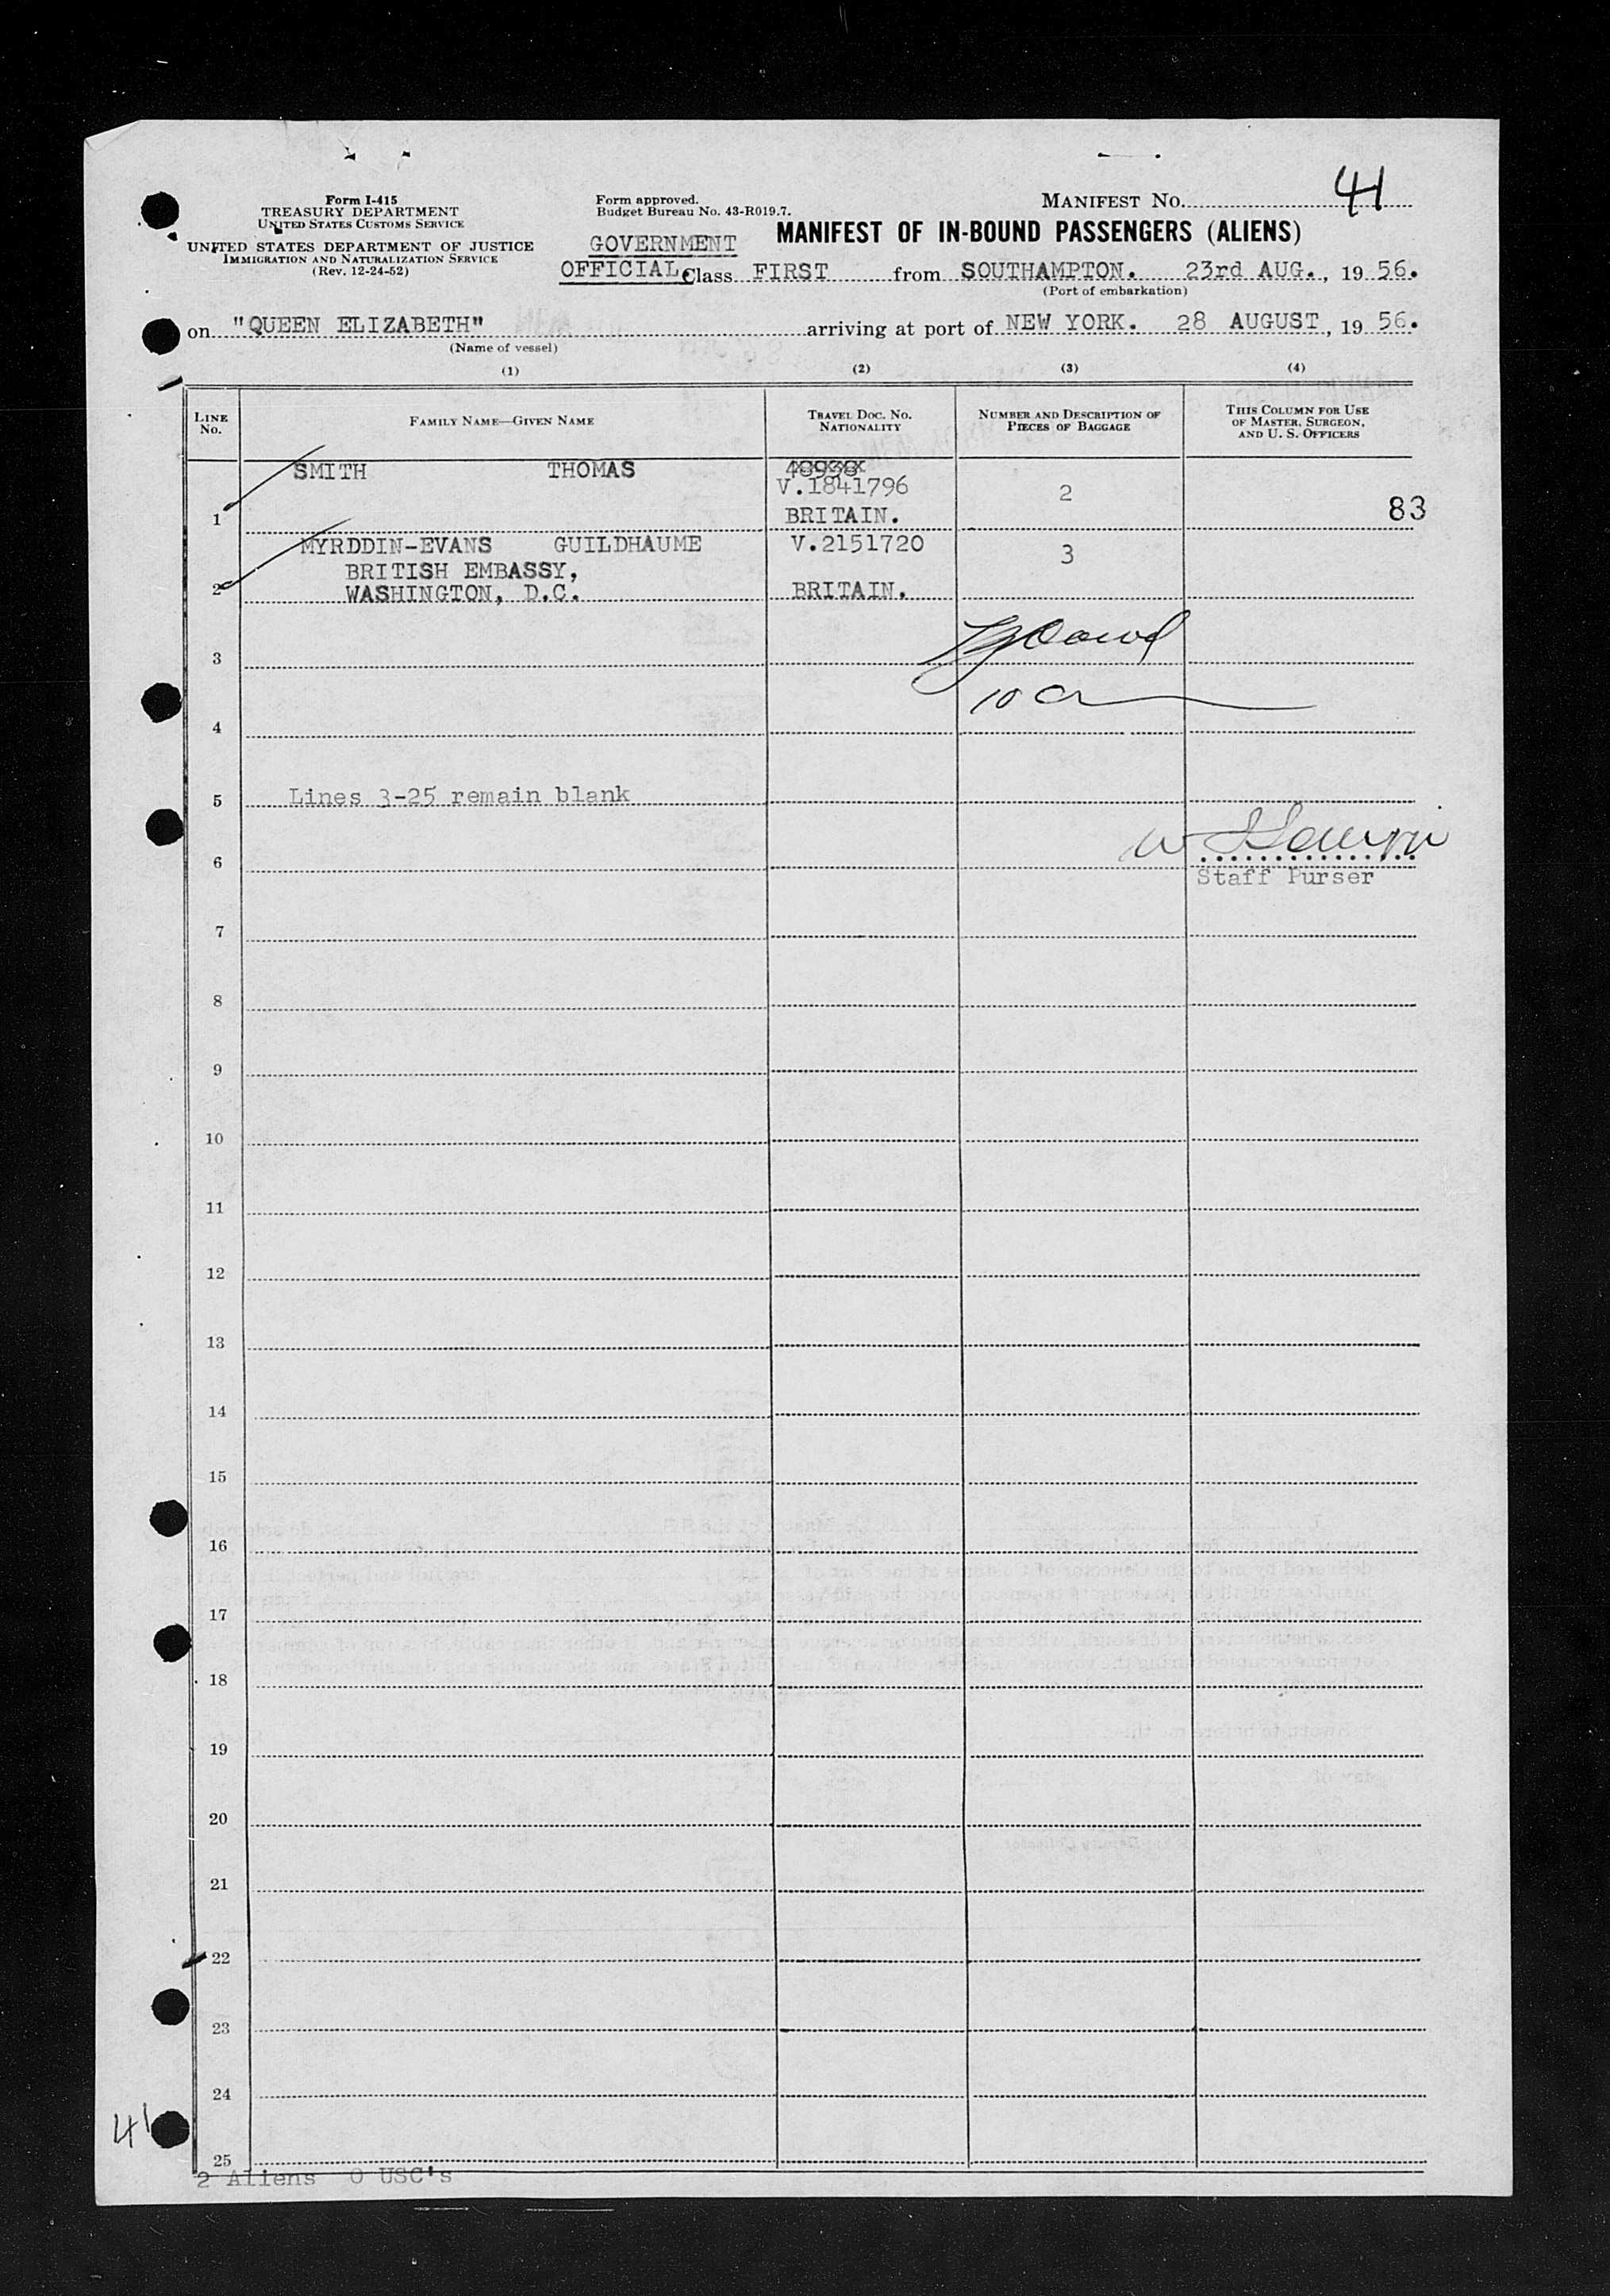 Form I-415
TREASURY DEPARTMENT
UNITED STATES CUSTOMS SERVICE
UNITED STATES DEPARTMENT OF JUSTICE
IMMIGRATION AND NATURALIZATION SERVICE
(Rev. 12-24-52)
Form approved.
Budget Bureau No. 43-R019.7.
MANIFEST NO. 41
MANIFEST OF IN-BOUND PASSENGERS (ALIENS)
GOVERNMENT
OFFICIAL Class FIRST from SOUTHAMPTON. 23rd AUG., 19 56.
(Port of embarkation)
on "QUEEN ELIZABETH" arriving at port of NEW YORK. 28 AUGUST, 19 56.
(Name of vessel)
(1) (2) (3) (4)
LINE NO. FAMILY NAME—GIVEN NAME TRAVEL DOC. NO. NATIONALITY NUMBER AND DESCRIPTION OF PIECES OF BAGGAGE THIS COLUMN FOR USE OF MASTER, SURGEON, AND U. S. OFFICERS
SMITH THOMAS
V.1841796 2
1 BRITAIN. 83
MYRDDIN-EVANS GUILDHAUME V.2151720 3
BRITISH EMBASSY,
2 WASHINGTON, D.C. BRITAIN.
3
4
5 Lines 3-25 remain blank
6
Staff Purser
7
8
9
10
11
12
13
14
15
16
17
18
19
20
21
22
23
24
41
25
2 Aliens 0 USC's